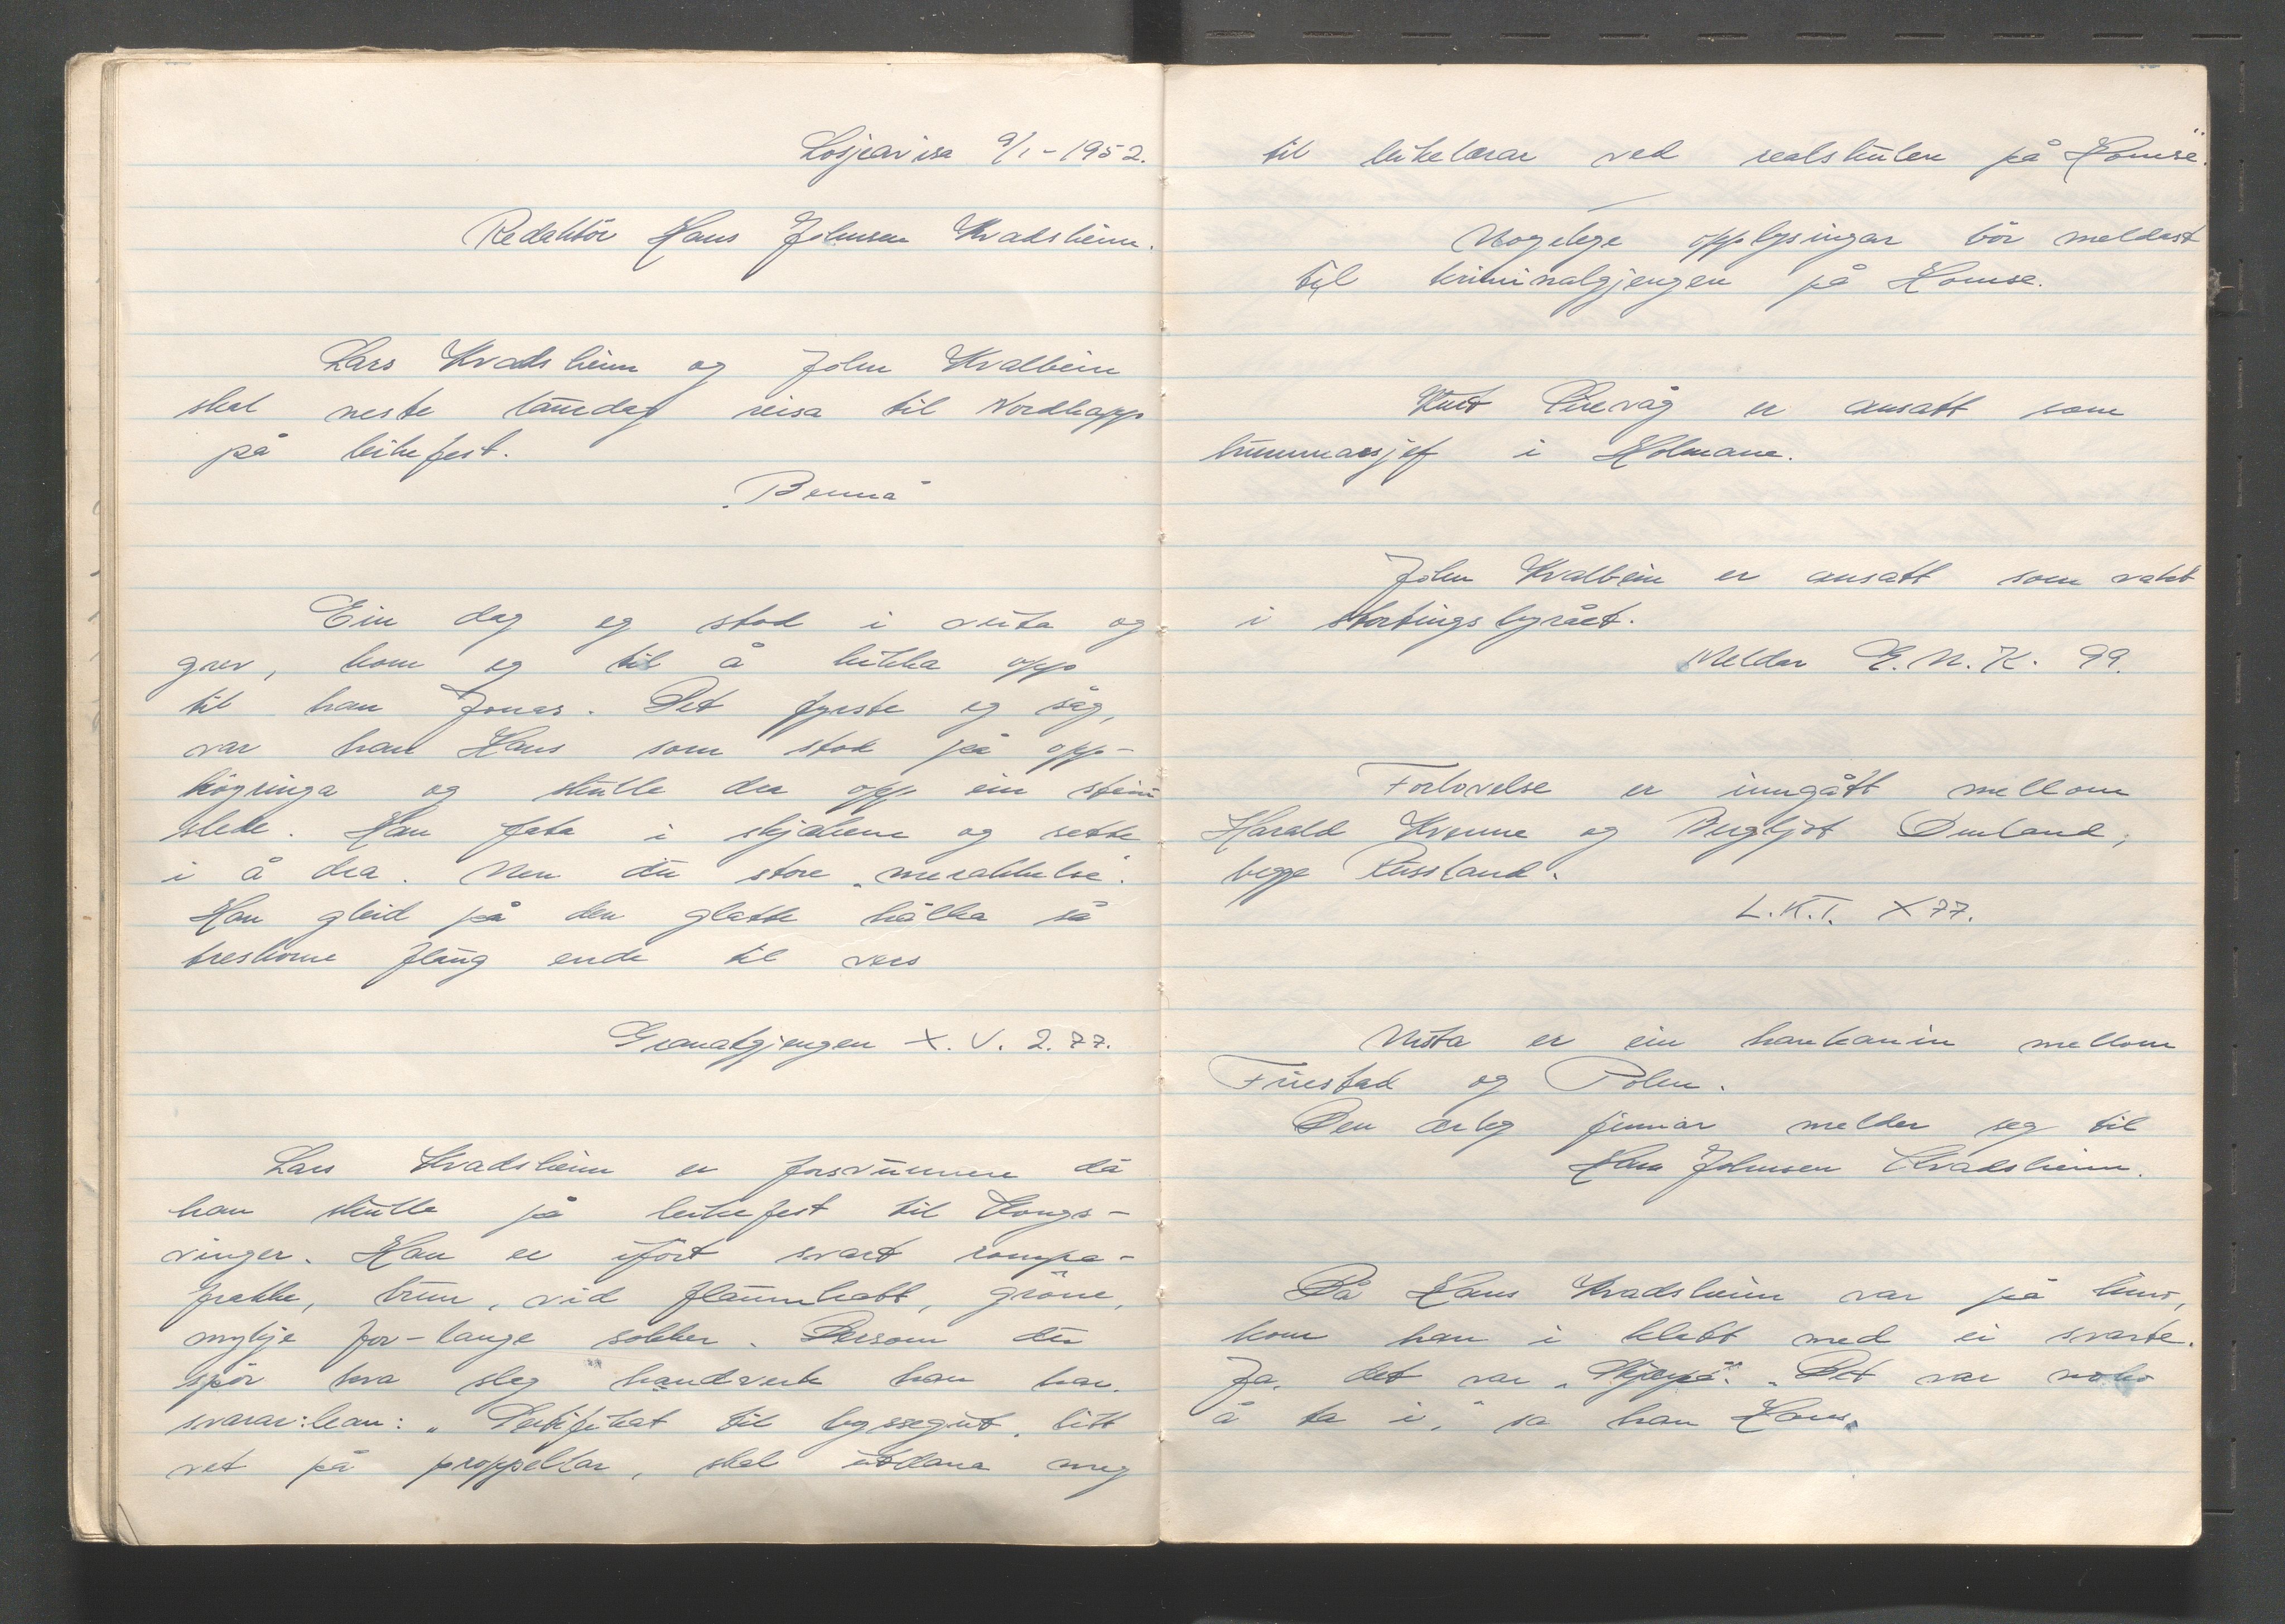 Losjeavisa 9/1-1952.
Redaktör Hans Johnsen Kvadsheim.
Lars Kvadsheim og John Kvalbein
skal neste laurdag reisa til Nordkapp
på leikefest.
"Benna"
Ein dag eg stod i veita og
grev, kom eg til å kikka opp
til han Jonas. Det fyrste eg såg,
var han Hans som stod på opp-
högringa og skulle dra opp ein stein
slede. Han fata i skjækene og sette
i å dra. Men du store "merakkelse".
Han gleid på den glatte hålka så
treskorne flaug ende til vers
Granatgjengen X. V. 2. 77.
Lars Kvadsheim er forsvunnen då
han skulle på leikefest til Kongs-
vinger. Han er iført svart rompe-
frakke, brun, vid flaumhatt, gröne,
mykje for-lange sokker. Dersom du
spör kva slag handverk han har.
svarar: han: "Sertifikat til byssegut, litt
vet på proppellar, skal utdana meg
til leikelærar ved realskulen på Homse".
Mogelege opplysingar bör meldast
til kriminalgjengen på Homse.
Knut Sirevåg er ansatt som
brummarsjef i Holmane.
John Kvalbein er ansatt som vakt
i stortingsbyrået.
Meldar E. N. K. 99.
Forlovelse er inngått mellom
Harald Kvenne og Bergljot Omland,
begge Russland.
L.K.T. X 77.
Mista er ein hankanin mellom
Fuestad og Polen.
Den ærleg finnar melder seg til
Hans Johnsen Kvadsheim.
Då Hans Kvadsheim var på
kom han i klabb med ei svarte.
Ja, det var "Det var noko
å ta i," sa han Hans.